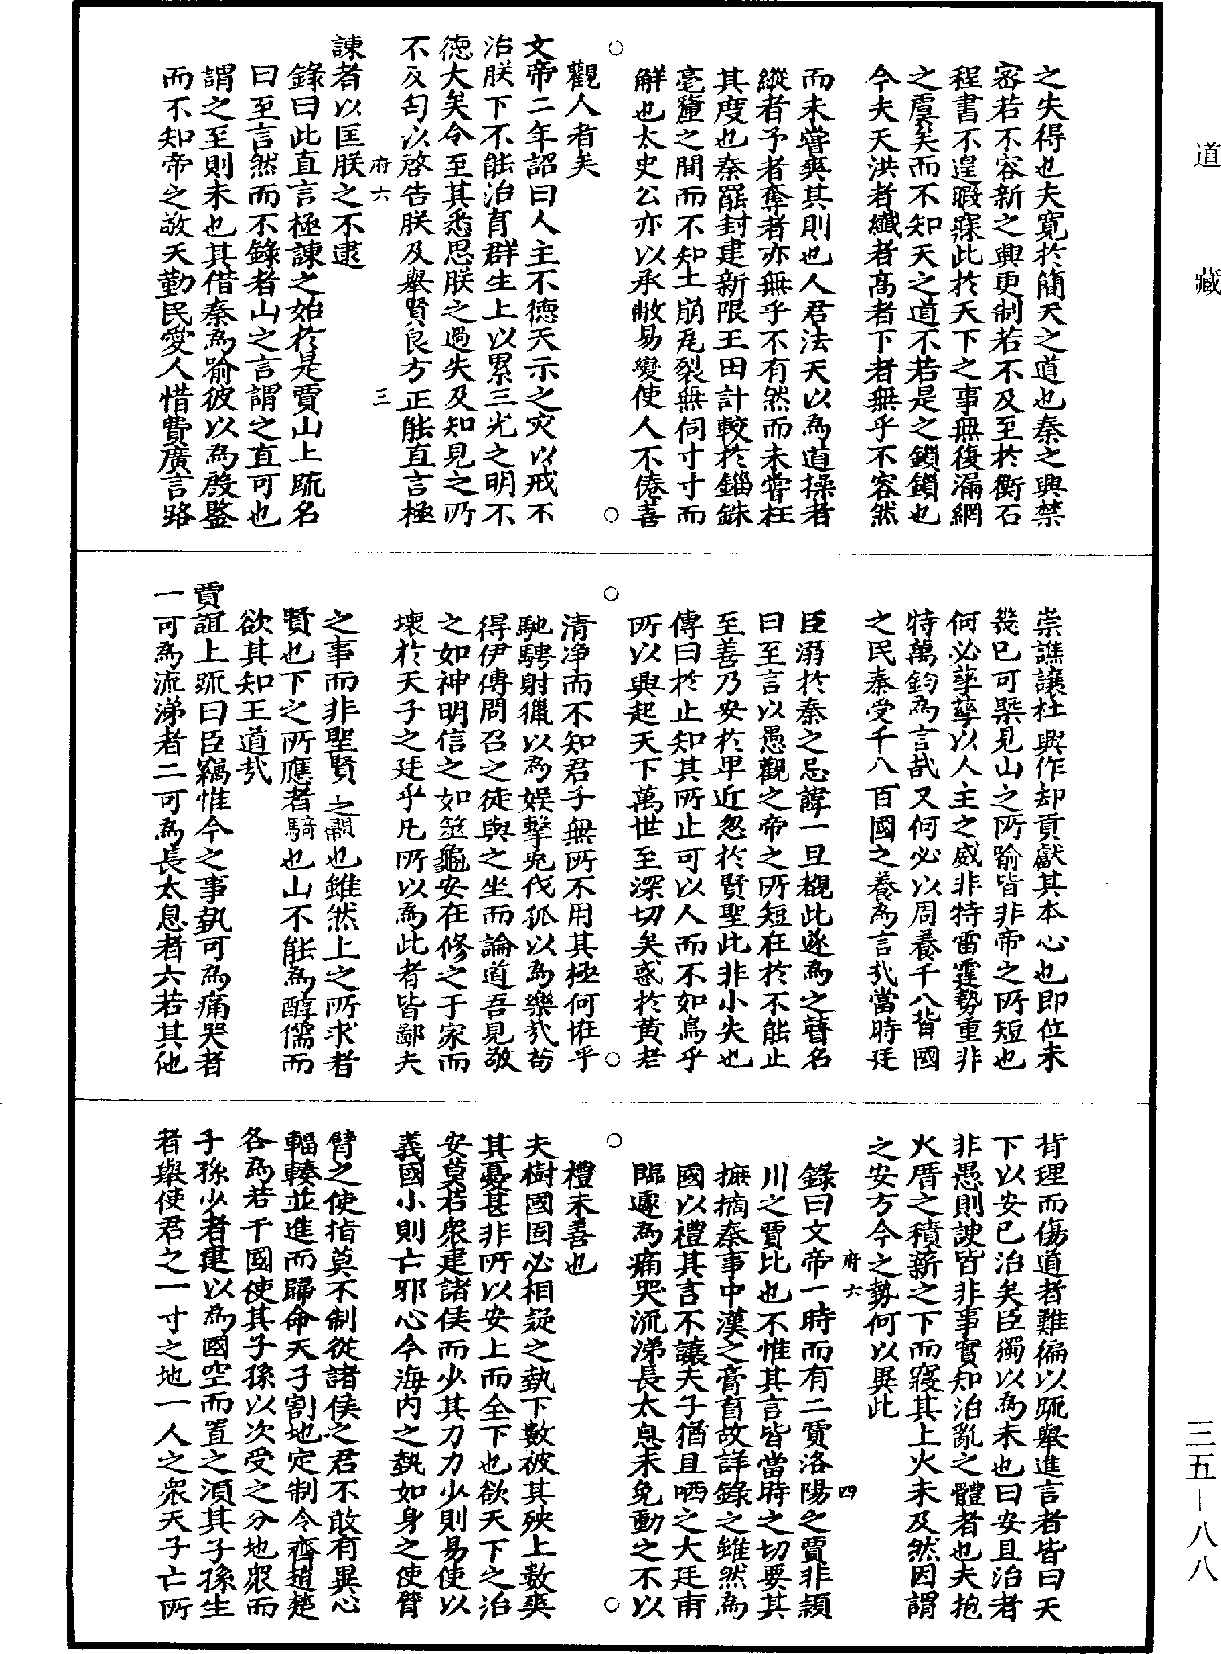 道藏
之失得也夫寬於簡天之道也秦之興禁
密若不容新之興更制若不及至於衡石
程書不遑暇寐此於天下之事無復漏網
之虞矣而不知天之道不若是之鎖鎖也
今夫天洪者纖者高者下者無乎不容然
而未嘗爽其則也人君法天以為道操者
縱者予者奪者亦無乎不有然而未嘗枉
其度也秦罷封建新限王田計較於錙銖
毫釐之間而不知土崩瓦裂無伺寸寸而
解也太史公亦以承敝易變使人不倦善
觀人者矣
文帝二年詔曰人主不德天示之灾以戒不
治朕下不能治育群生上以累三光之明不
德大矣令至其悉思朕之過失及知見之所
不及匄以啓告朕及舉賢良方正能直言極
府六 三
諫者以匡朕之不逮
錄曰此直言極諫之始於是賈山上疏名
曰至言然而不錄者山之言謂之直可也
謂之至則未也其借秦為喻彼以為殷鑒
而不知帝之敬天勤民愛人惜費廣言路
崇譙讓杜興作却貢獻其本心也即位未
幾已可槩見山之所喻皆非帝之所短也
何必孳孳以人主之威非特雷霆勢重非
特萬鈞為言哉又何必以周養千八百國
之民秦受千八百國之養為言哉當時廷
臣溺於秦之忌諱一旦覩此遂為之瞽名
曰至言以愚觀之帝之所短在於不能止
至善乃安於卑近忽於賢聖此非小失也
傳曰於止知其所止可以人而不如鳥乎
所以興起天下萬世至深切矣惑於黃老
清净而不知君子無所不用其極何啙乎
馳騁射獵以為娛擊兔伐狐以為樂哉苟
得伊傅周召之徒與之坐而論道吾見敬
之如神明信之如筮龜安在修之于家而
壞於天子之廷乎凡所以為此者皆鄙夫
之事而非聖賢之訓也雖然上之所求者
賢也下之所應者騎也山不能為醇儒而
欲其知王道哉
賈誼上疏曰臣竊惟今之事埶可為痛哭者
一可為流涕者二可為長太息者六若其他
背理而傷道者難徧以疏舉進言者皆曰天
下以安已治矣臣獨以為未也曰安且治者
非愚則諛皆非事實知治亂之體者也夫抱
火厝之積薪之下而寢其上火未及然因謂
之安方今之勢何以異此
府六 四
錄曰文帝一時而有二賈洛陽之賈非潁
川之賈比也不惟其言皆當時之切要其
摭摘秦事中漢之膏肓故詳錄之雖然為
國以禮其言不讓夫子猶且哂之大廷甫
臨遽為痛哭流涕長太息未免動之不以
禮未善也
夫樹國固必相疑之埶下數被其殃上數爽
其憂甚非所以安上而全下也欲天下之治
安莫若衆建諸侯而少其力力少則易使以
義國小則亡邪心令海內之埶如身之使臂
臂之使指莫不制從諸侯之君不敢有異心
輻輳並進而歸命天子割地定制令齊趙楚
各為若干國使其子孫以次受之分地衆而
子孫少者建以為國空而置之湏其子孫生
者舉使君之一寸之地一人之衆天子亡所
三五—八八